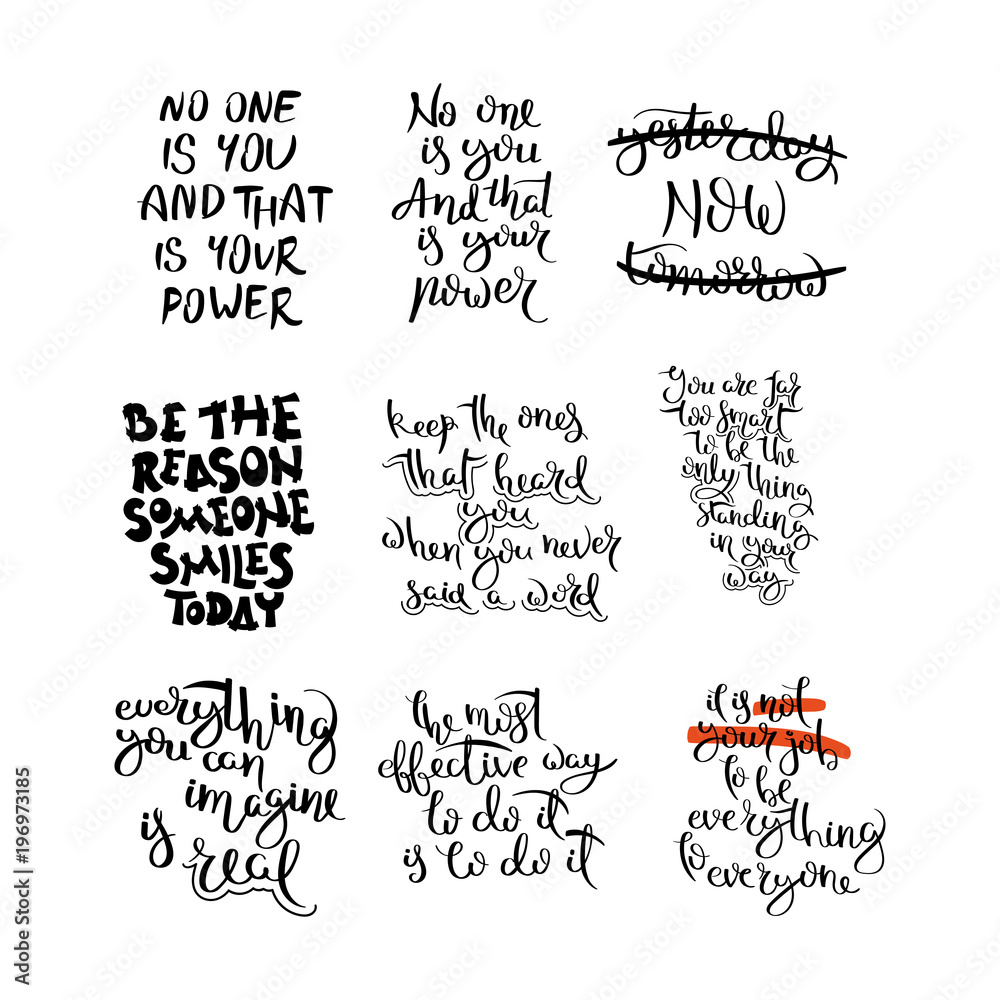 NO ONE
IS YOU
AND THAT
IS YOUR
POWER
No one
is you
And that
is your
power
yesterday
NOW
tomorrow
BE THE
REASON
SOMEONE
SMILES
TODAY
keep the ones
that heard
you
when you never
said a word
You are far
too smart
to be the
only thing
standing
in your
way
everything
you can
imagine
is
real
the most
effective way
to do it
is to do it
it is not
your job
to be
everything
to everyone
Adobe Stock | #196973185